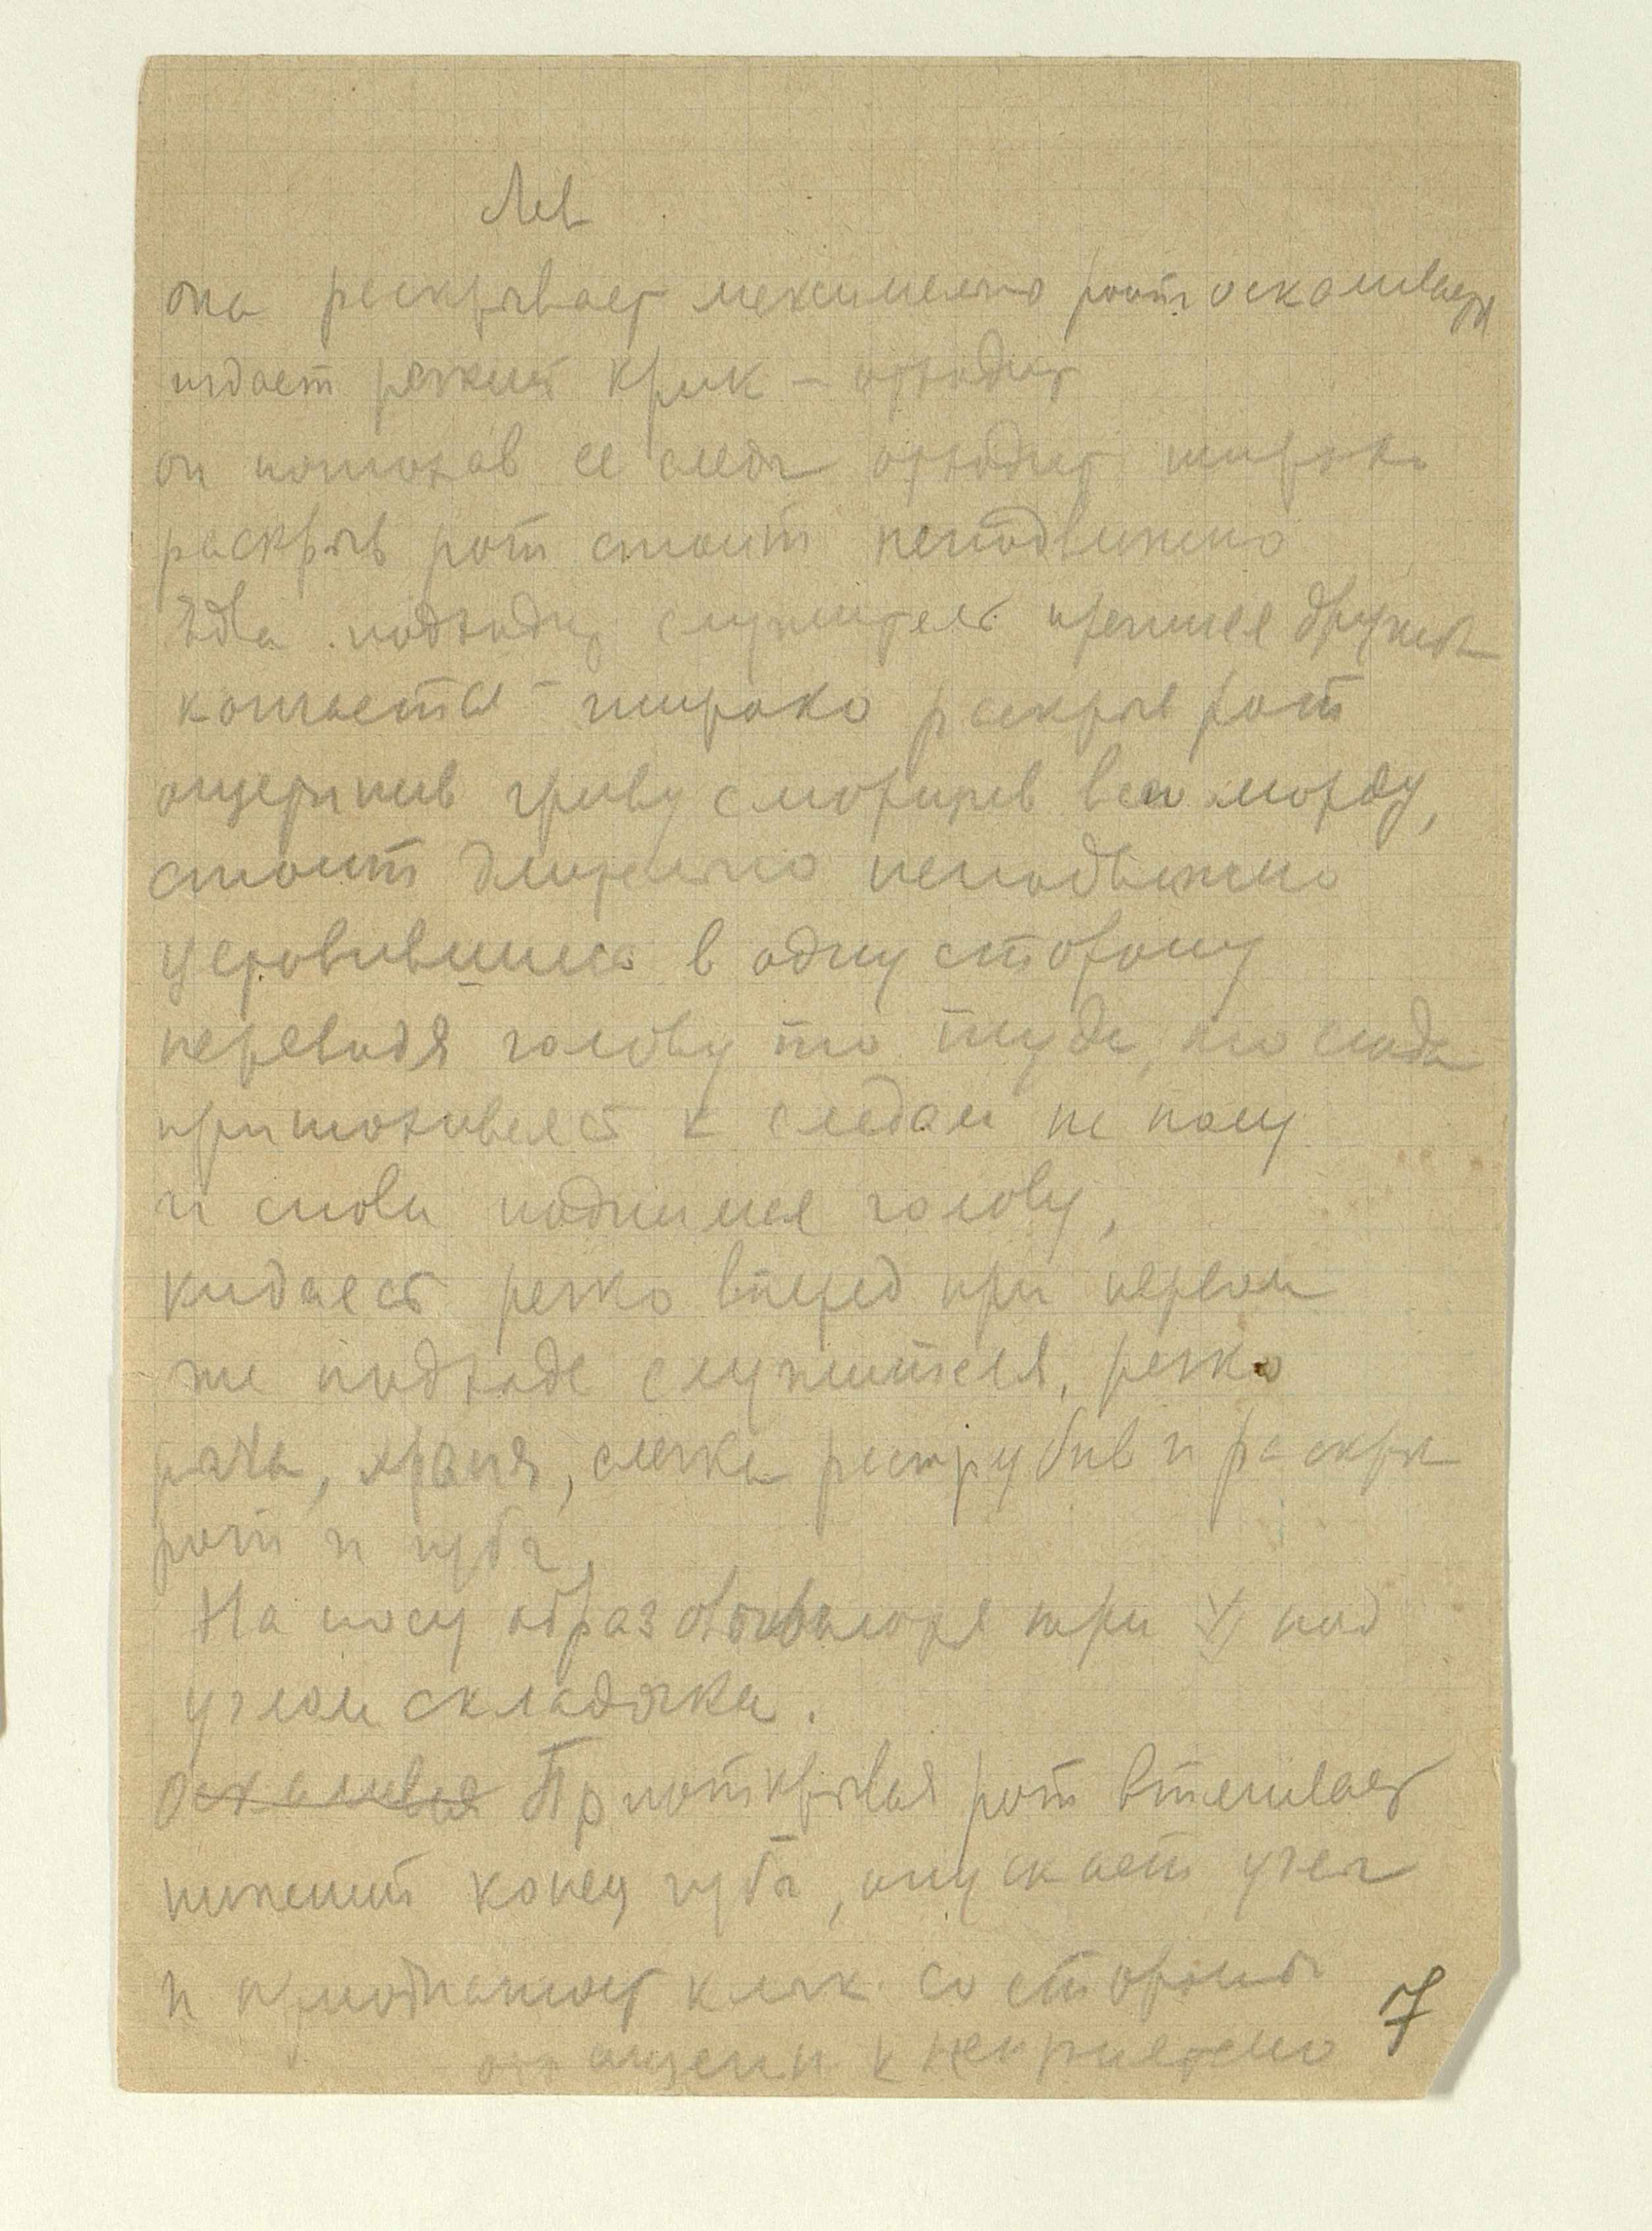 Лев
она раскрывает максимально рот оскаливается
издает резкий крик – отходит
он понюхав ее следы отходит широко
раскрыв рот стоит неподвижно
Едва подходит служитель
широко раскрыв рот
гриву сморщив всю морду,
стоит длительно неподвижно
в одну сторону
переводя голову то туда, то сюда
принюхивается к следам на полу
и снова поднимая голову,
кидается резко вперед при первом
же подходе служителя, резко
рыча, храпя, слегка раструбив и раскрыв
рот и губы,
На носу образовываются три под
углом складочки.
Оскаливая Приоткрывая рот втягивает
нижний конец губы, опускает углы
и приоткрывает клык со стороны
к неприятелю
7